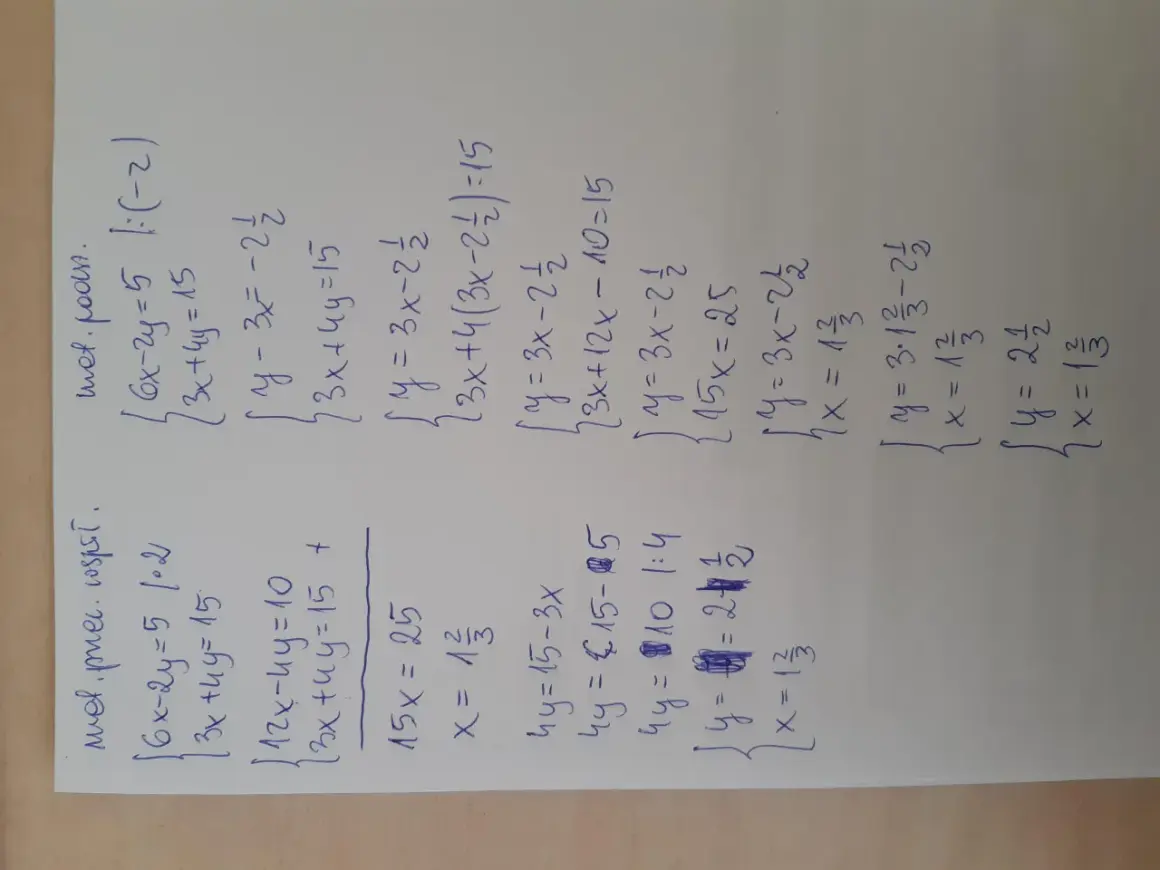 met. przec. współ.
{6x-2y=5 |·2
{3x+4y=15
{12x-4y=10
{3x+4y=15 +
15x=25
x=1 2/3
4y=15-3x
4y=15-5
4y=10 |:4
{y=2 1/2
{x=1 2/3
met. podst.
{6x-2y=5 |:(-2)
{3x+4y=15
{y-3x=-2 1/2
{3x+4y=15
{y=3x-2 1/2
{3x+4(3x-2 1/2)=15
{y=3x-2 1/2
{3x+12x-10=15
{y=3x-2 1/2
{15x=25
{y=3x-2 1/2
{x=1 2/3
{y=3·1 2/3-2 1/2
{x=1 2/3
{y=2 1/2
{x=1 2/3